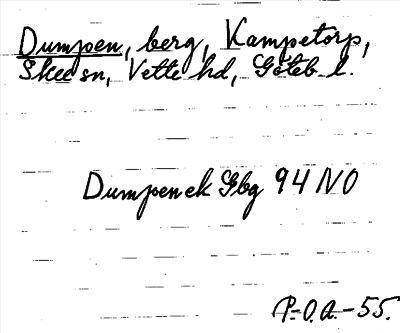 Dumpen, berg, Kampetorp,
Skee sn, Vette hd, Göteb l.
Dumpenek Gbg 94 NO
P.-O.A.-55.